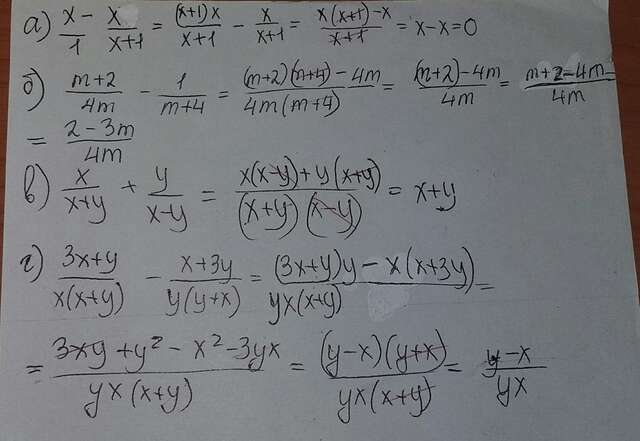 а) x/1 - x/(x+1) = (x+1)x/(x+1) - x/(x+1) = (x(x+1)-x)/(x+1) = x-x=0
б) (m+2)/4m - 1/(m+4) = ((m+2)(m+4)-4m)/(4m(m+4)) = ((m+2)-4m)/4m = (m+2-4m)/4m =
= (2-3m)/4m
в) x/(x+y) + y/(x-y) = (x(x-y)+y(x+y))/((x+y)(x-y)) = x+y
г) (3x+y)/(x(x+y)) - (x+3y)/(y(y+x)) = ((3x+y)y-x(x+3y))/(yx(x+y)) =
= (3xy+y²-x²-3yx)/(yx(x+y)) = ((y-x)(y+x))/(yx(x+y)) = (y-x)/yx